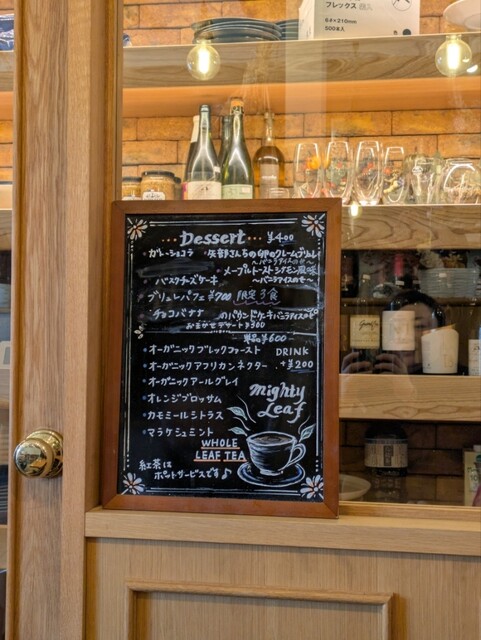 フレックス
64×210mm
500本入
Dessert ¥400
・ガトーショコラ ・矢部さんちの卵のクレームブリュレ
〜バニラアイスのせ〜
・メープルトースト シナモン風味
・バスクチーズケーキ 〜バニラアイスのせ〜
ブリュレパフェ ¥700 限定3食
チョコバナナのパウンドケーキバニラアイスのせ
おまかせデザート ¥300
単品¥600
・オーガニックブレックファースト DRINK
・オーガニックアフリカンネクター +¥200
・オーガニックアールグレイ
・オレンジブロッサム
・カモミールシトラス
・マラケシュミント
Mighty
Leaf
WHOLE
LEAF TEA
紅茶は
ポットサービスです♪